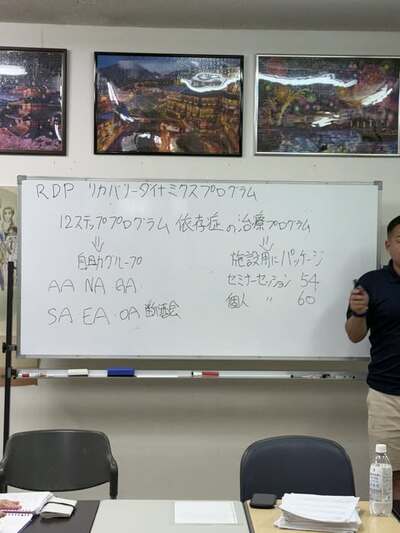 RDP リカバリーダイナミクスプログラム
12ステッププログラム 依存症の治療プログラム
⇓ ⇓
自助グループ 施設用にパッケージ
AA NA GA セミナーセッション 54
SA, EA・OA 断酒会 個人 〃 60